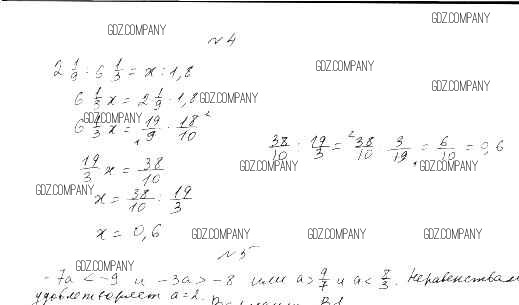 GDZ.COMPANY
№4
GDZ.COMPANY
2 1/9 : 6 1/3 = x : 1,8
GDZ.COMPANY
6 1/3 x = 2 1/9 · 1,8
GDZ.COMPANY
GDZ.COMPANY
6 1/3 x = 19/9 · 18/10
GDZ.COMPANY
38/10 : 19/3 = 38/10 · 3/19 = 6/10 = 0,6
19/3 x = 38/10
GDZ.COMPANY
GDZ.COMPANY
x = 38/10 : 19/3
GDZ.COMPANY
x = 0,6
GDZ.COMPANY
GDZ.COMPANY
GDZ.COMPANY
№5
GDZ.COMPANY
-7a < -9 и -3a > -8 или a > 9/7 и a < 8/3. Неравенствам
удовлетворяет a = 2.